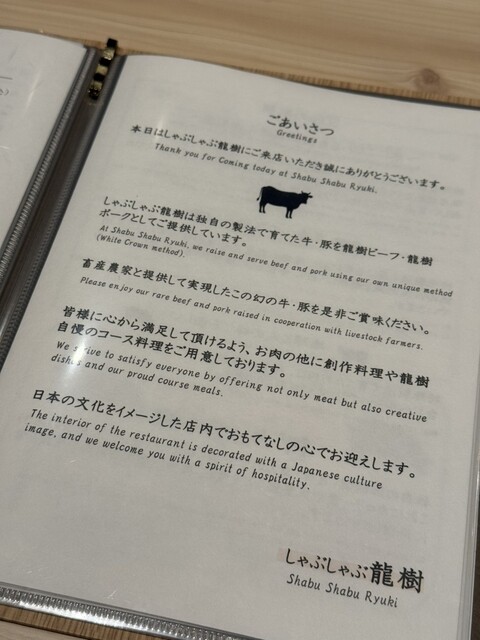 ごあいさつ
Greetings
本日はしゃぶしゃぶ龍樹にご来店いただき誠にありがとうございます。
Thank you for Coming today at Shabu Shabu Ryuki.
しゃぶしゃぶ龍樹は独自の製法で育てた牛・豚を龍樹ビーフ・龍樹
ポークとしてご提供しています。
At Shabu Shabu Ryuki, we raise and serve beef and pork using our own unique method
(White Crown method).
畜産農家と提供して実現したこの幻の牛・豚を是非ご賞味ください。
Please enjoy our rare beef and pork raised in cooperation with livestock farmers.
皆様に心から満足して頂けるよう、お肉の他に創作料理や龍樹
自慢のコース料理をご用意しております。
We strive to satisfy everyone by offering not only meat but also creative
dishes and our proud course meals.
日本の文化をイメージした店内でおもてなしの心でお迎えします。
The interior of the restaurant is decorated with a Japanese culture
image, and we welcome you with a spirit of hospitality.
しゃぶしゃぶ龍樹
Shabu Shabu Ryuki